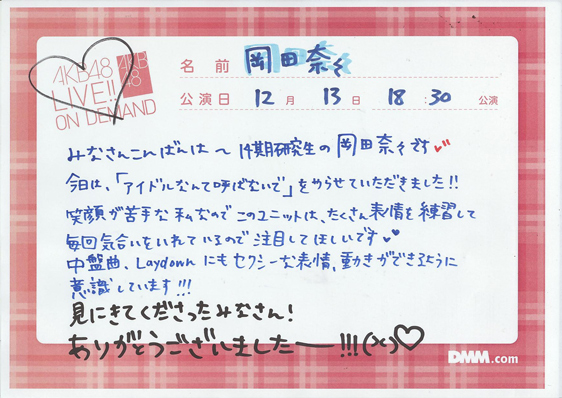 AKB48
LIVE!!
ON DEMAND
AKB
48
名 前 岡田奈々
公演日 12 月 13 日 18:30 公演
みなさんこんばんは〜 14期研究生の 岡田奈々です♥
今日は、「アイドルなんて呼ばないで」をやらせていただきました!!
笑顔が苦手な私なのでこのユニットは、たくさん表情を練習して
毎回気合いをいれているので注目してほしいです♥
中盤曲、Laydownにもセクシーな表情、動きができるように
意識しています!!!
見にきてくださったみなさん!
ありがとうございましたー!!!(x)♡
DMM.com